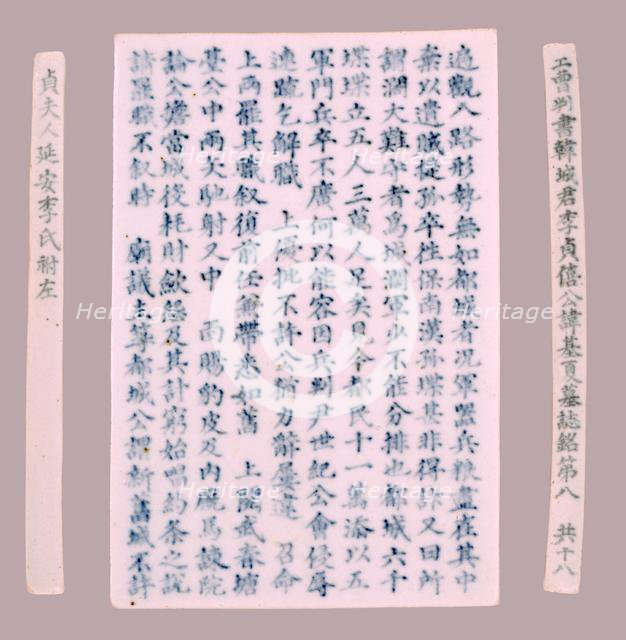 工曹判書韓城君李貞僖公諱基夏墓誌銘第八 共十八
遍觀八路形勢無如都城者况軍器兵粮盡在其中
棄以遺賊孤卒往保南漢甚非得又曰所
謂濶大難守者爲城濶軍少不能分排也都城六千
堞堞立五人三萬人足矣見今都民十一萬添以五
軍門兵卒不廣何以能容因兵判尹世紀公會侵辱
連䟽乞解職 上優批不許公力辭屢違 召命
上罷其職叙復前任帶悉如舊 上閱武春塘
臺公中兩矢馳射又中 面賜豹皮及內廐馬諫院
論公當城役耗財歛怨及其計窮始唱約条之說
請罷職不叙時 廟議主築都城公謂新舊城不許
貞夫人延安李氏祔左
Heritage
Heritage
Heritage
Heritage
Heritage
Heritage
Heritage
Heritage